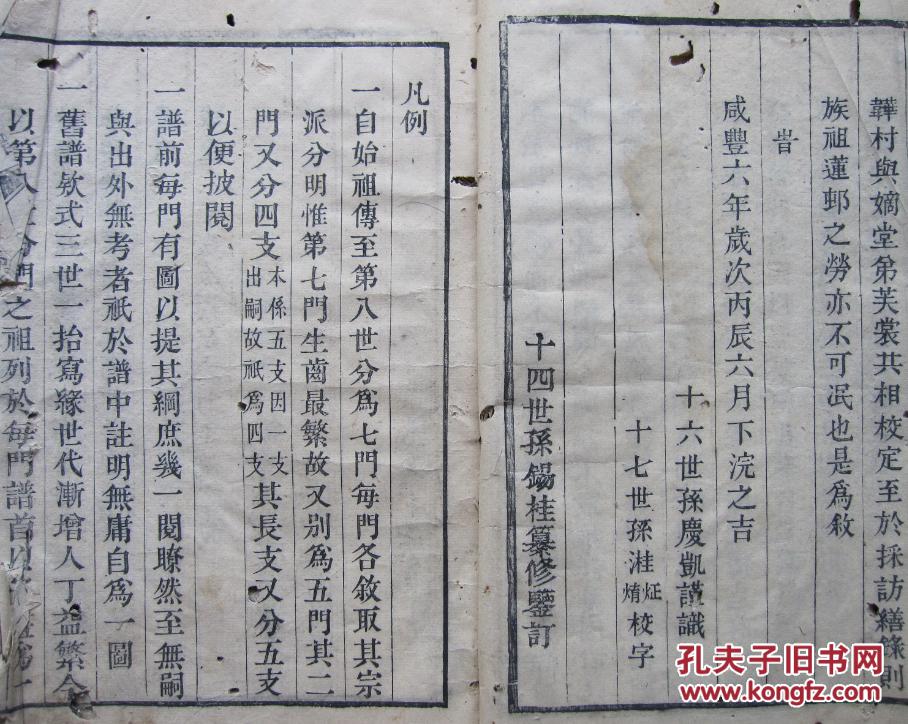 韡村與嫡堂弟芙裳共相校定至於採訪繕錄則
族祖蓮邨之勞亦不可泯也是爲敘
旹
咸豐六年歲次丙辰六月下浣之吉
十六世孫慶凱謹識
十七世孫溎炡焴校字
十四世孫錫桂纂修鑒訂
凡例
一自始祖傳至第八世分爲七門每門各敘取其宗
派分明惟第七門生齒最繁故又别爲五門其二
門又分四支本係五支因一支出嗣故祇爲四支其長支又分五支
以便披閱
一譜前每門有圖以提其綱庶幾一閱瞭然至無嗣
與出外無考者祇於譜中註明無庸自爲一圖
一舊譜欵式三世一抬寫緣世代漸增人丁益繁今
以第八 分門之祖列於每門譜首以
孔夫子旧书网
www.kongfz.com